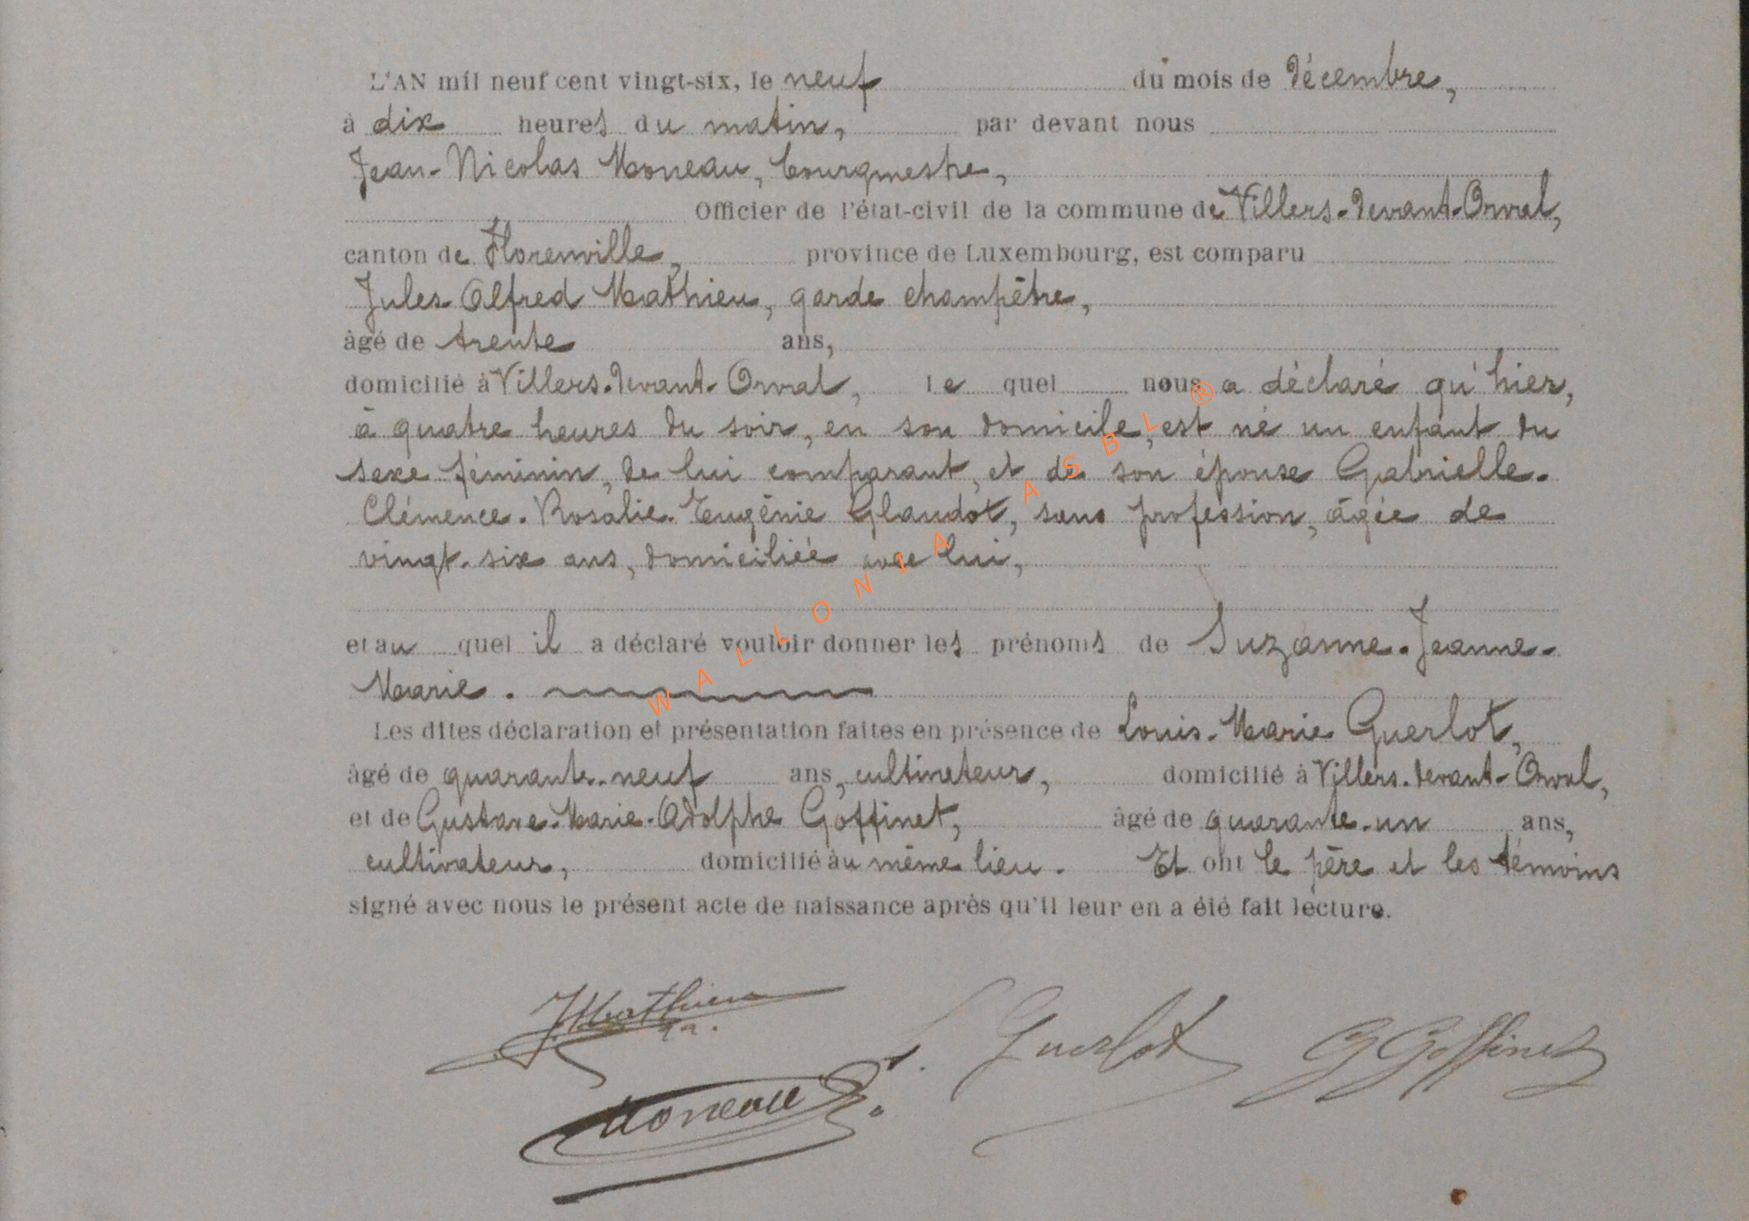 L'AN mil neuf cent vingt-six, le neuf du mois de décembre,
à dix heures du matin, par devant nous
Jean-Nicolas Moneau, bourgmestre,
Officier de l'état-civil de la commune de Villers-devant-Orval,
canton de Florenville, province de Luxembourg, est comparu
Jules Alfred Mathieu, garde champêtre,
âgé de trente ans,
domicilié à Villers-devant-Orval, le quel nous a déclaré qu'hier,
à quatre heures du soir, en son domicile, est né un enfant du
sexe féminin, de lui comparant, et de son épouse Gabrielle-
Clémence-Rosalie-Eugénie Glaudot, sans profession, âgée de
vingt-six ans, domiciliée avec lui,
et au quel il a déclaré vouloir donner les prénoms de Suzanne-Jeanne-
Marie.
Les dites déclaration et présentation faites en présence de Louis-Marie Guerlot,
âgé de quarante-neuf ans, cultivateur, domicilié à Villers-devant-Orval,
et de Gustave-Marie-Adolphe Goffinet, âgé de quarante-un ans,
cultivateur, domicilié au même lieu. Et ont le père et les témoins
signé avec nous le présent acte de naissance après qu'il leur en a été fait lecture.
JMathieu L. Guerlot G Goffinet
Moneau
WALLONIA ASBL ®